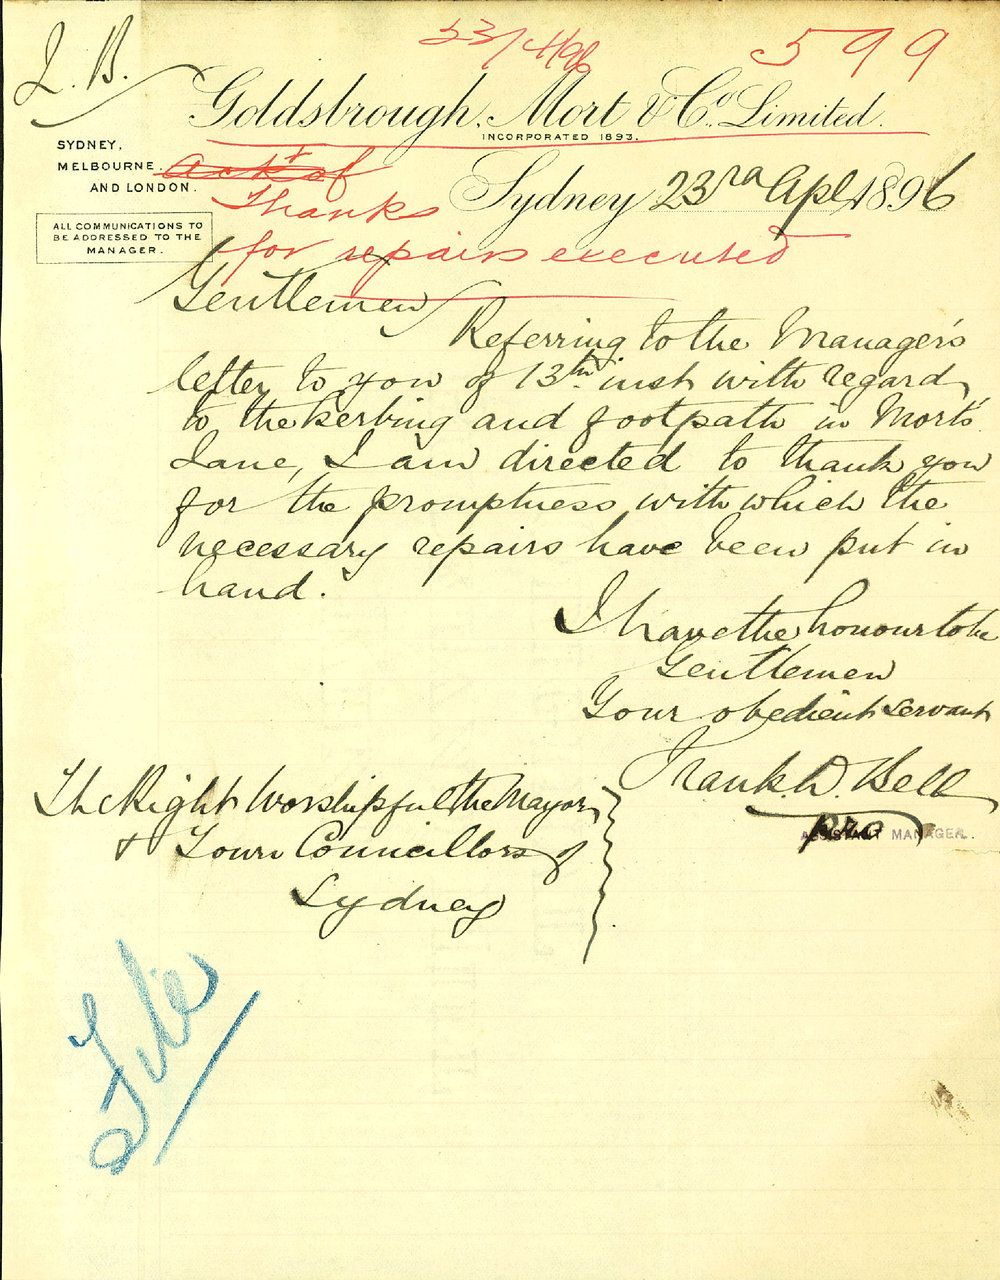 J. B.
23/4/96
599
Goldsbrough, Mort & Co., Limited.
INCORPORATED 1893.
SYDNEY,
MELBOURNE,
AND LONDON.
ALL COMMUNICATIONS TO
BE ADDRESSED TO THE
MANAGER.
Ackt of
Thanks
for repairs executed
Sydney 23rd Apl 1896
Gentlemen
Referring to the Manager's
letter to you of 13th inst with regard
to the kerbing and footpath in Mort's
Lane, I am directed to thank you
for the promptness with which the
necessary repairs have been put in
hand.
I have the honour to be
Gentlemen
Your obedient servant
Frank. D. Bell
pro
ASSISTANT MANAGER.
The Right Worshipful the Mayor
& Town Councillors of
Sydney
File